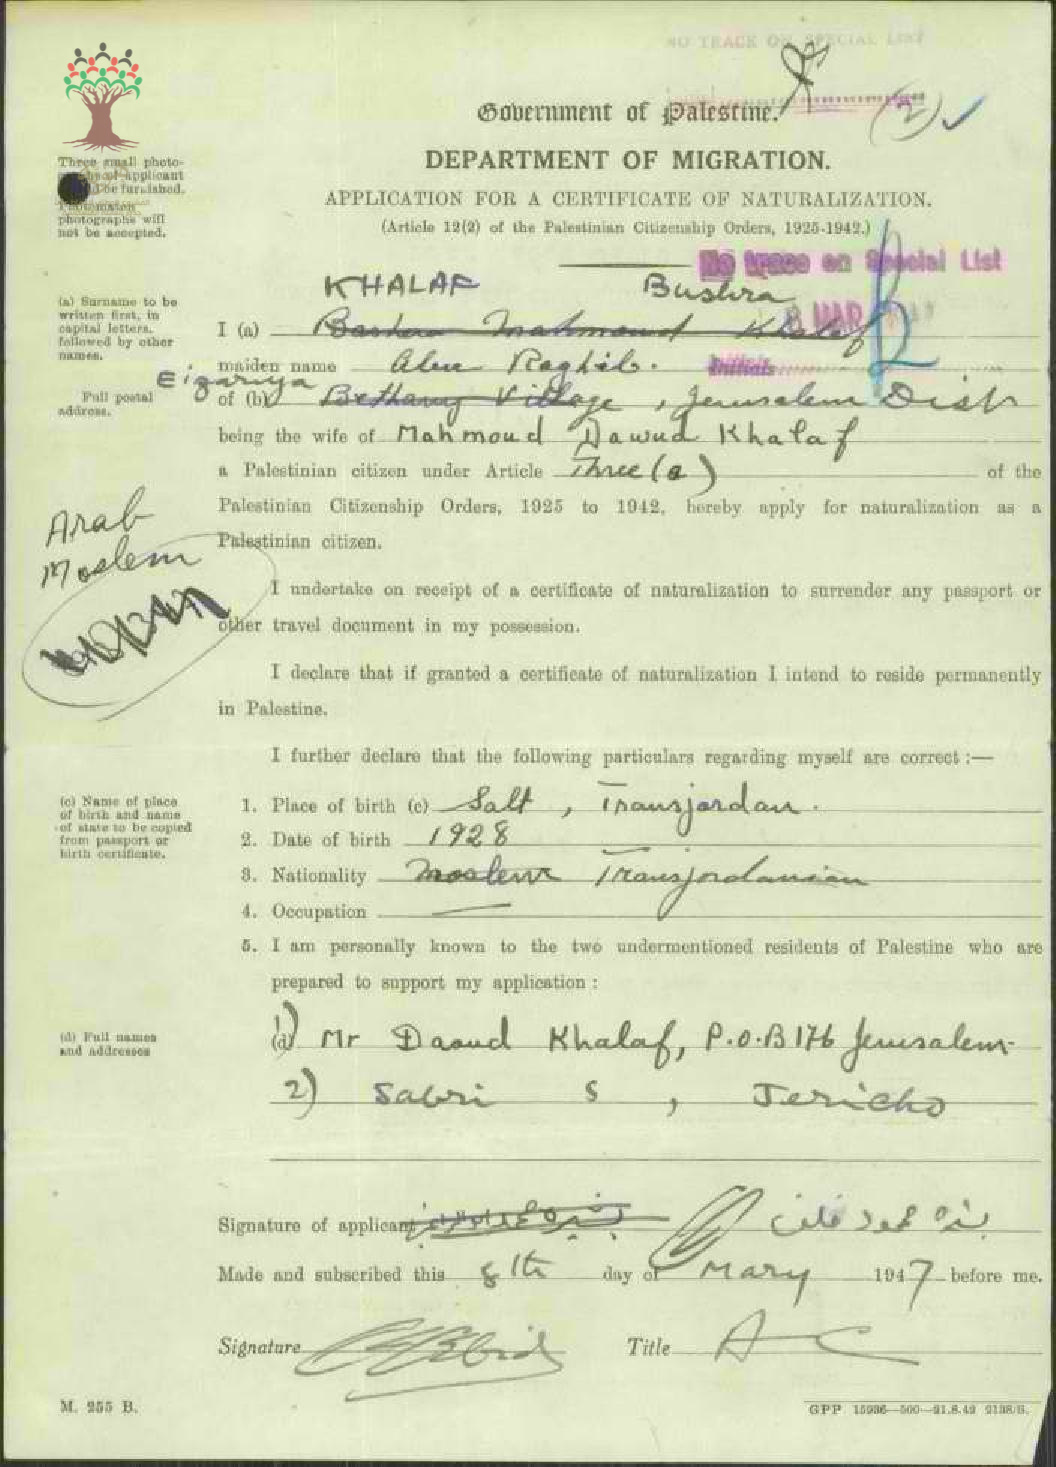 NO TRACK ON SPECIAL LIST
Government of Palestine.
(2)
DEPARTMENT OF MIGRATION.
APPLICATION FOR A CERTIFICATE OF NATURALIZATION.
(Article 12(2) of the Palestinian Citizenship Orders, 1925-1942.)
Three small photo-
graphs of applicant
be furnished.
photographs will
not be accepted.
No trace on Special List
MAR
Initials
(a) Surname to be
written first, in
capital letters,
followed by other
names.
KHALAF Bushra
I (a) Bashra Mahmoud Khalaf
maiden name Abu Raghib.
Full postal
address.
Eizariya
of (b) Bethany Village, Jerusalem Distr
being the wife of Mahmoud Dawud Khalaf
a Palestinian citizen under Article Three (a) of the
Palestinian Citizenship Orders, 1925 to 1942, hereby apply for naturalization as a
Palestinian citizen.
Arab
Moslem
I undertake on receipt of a certificate of naturalization to surrender any passport or
other travel document in my possession.
I declare that if granted a certificate of naturalization I intend to reside permanently
in Palestine.
I further declare that the following particulars regarding myself are correct :—
(c) Name of place
of birth and name
of state to be copied
from passport or
birth certificate.
1. Place of birth (c) Salt, Transjordan.
2. Date of birth 1928
3. Nationality Moslem Transjordanian
4. Occupation —
5. I am personally known to the two undermentioned residents of Palestine who are
prepared to support my application :
(d) Full names
and addresses
1) (d) Mr Daoud Khalaf, P.O.B 176 Jerusalem-
2) Sabri S , Jericho
Signature of applicant محمود خلف
Made and subscribed this 8th day of Mary 1947 before me.
Signature Title A C
M. 255 B.
GPP 15936—500—21.8.42 2138/S.